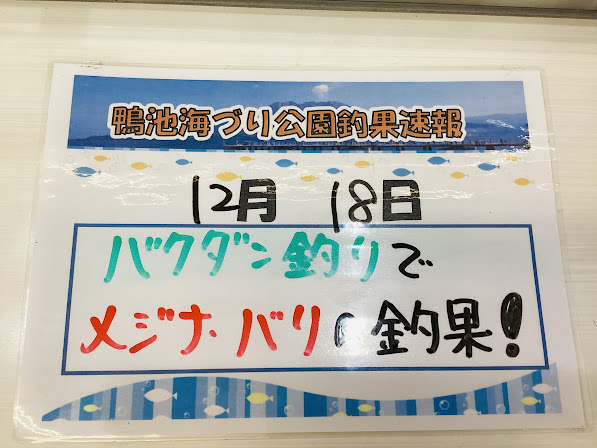 鴨池海づり公園釣果速報
12月 18日
バクダン釣りで
メジナ バリの釣果!